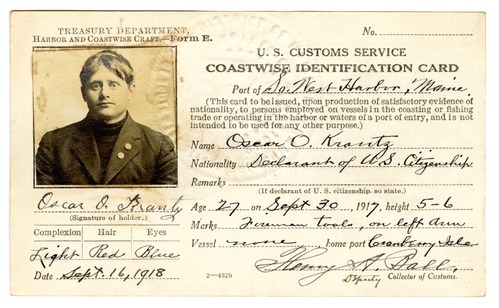 TREASURY DEPARTMENT,
HARBOR AND COASTWISE CRAFT.—FORM E.
Oscar O. Krantz
(Signature of holder.)
Complexion Hair Eyes
Light Red Blue
Date Sept. 16, 1918
No.
U. S. CUSTOMS SERVICE
COASTWISE IDENTIFICATION CARD
Port of So. West Harbor, Maine
(This card to be issued, upon production of satisfactory evidence of
nationality, to persons employed on vessels in the coasting or fishing
trade or operating in the harbor or waters of a port of entry, and is not
intended to be used for any other purpose.)
Name Oscar O. Krantz
Nationality Declarant of U.S. Citizenship
Remarks
(If declarant of U. S. citizenship, so state.)
Age 27 on Sept 30, 1917, height 5-6
Marks Foreman tools, on left arm
Vessel none, home port Cranberry Isle
Henry A. Ball,
2—4629 Deputy Collector of Customs.